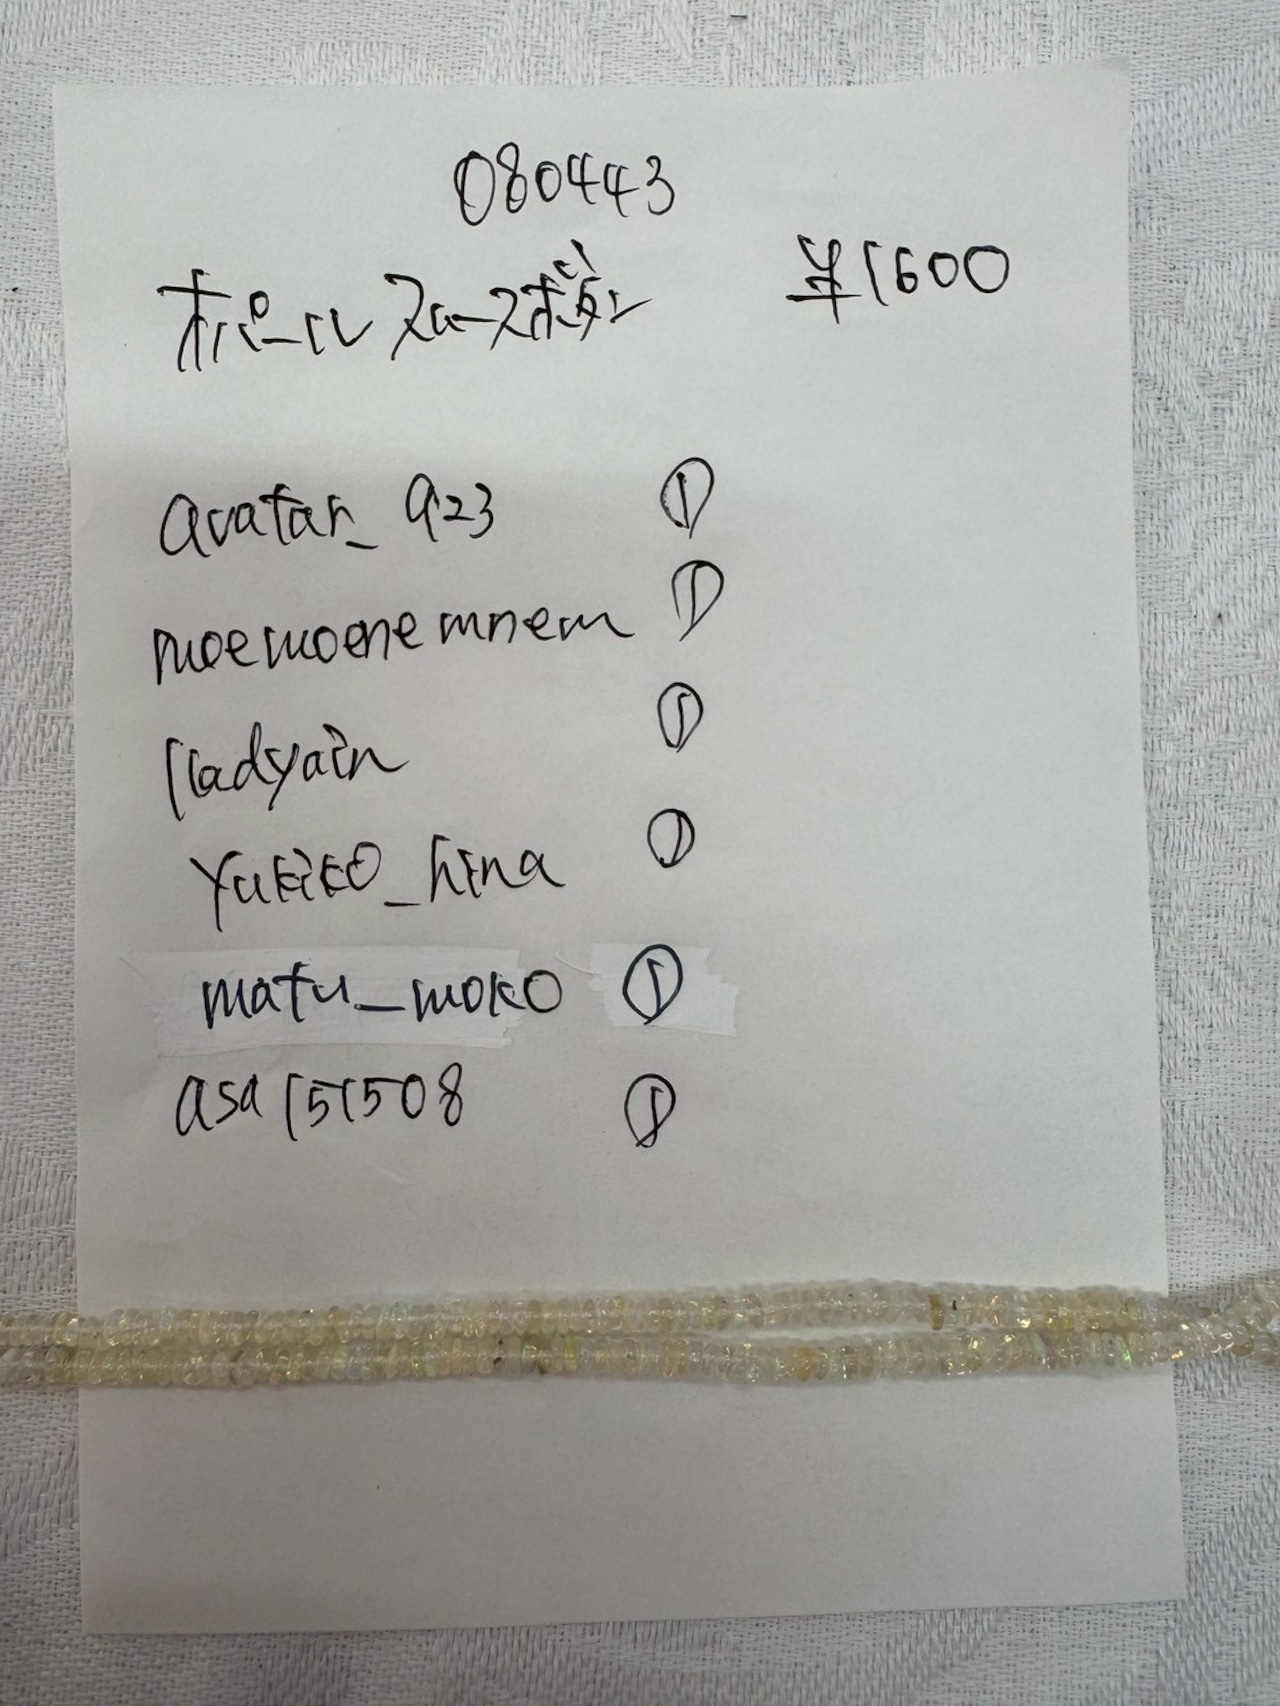 080443
オパール スムースボタン ¥1600
avatar_923 ①
moemoenemnem ①
lladyain ①
yukiko_hina ①
matu_moko ①
asa151508 ①